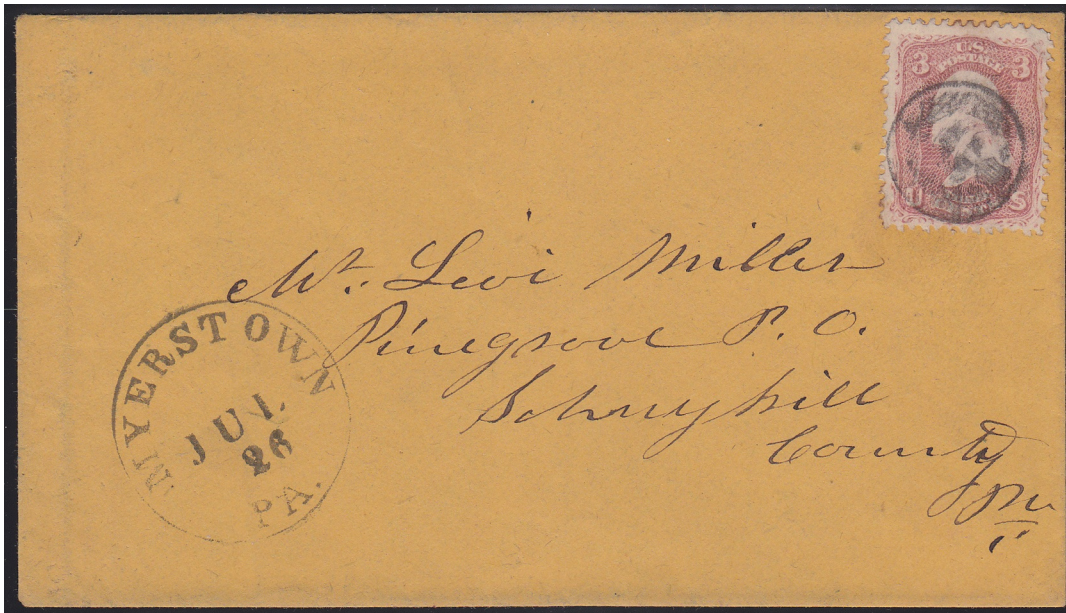 3 U.S. 3
POSTAGE
U S
Mr. Levi Miller
Pinegrove P. O.
Schuylkill
County
Pa
MYERSTOWN
JUL
26
PA.